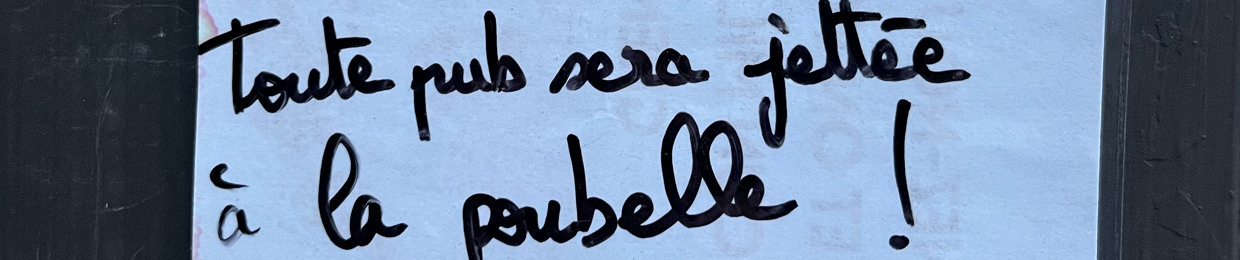 Toute pub sera jettée
à la poubelle !